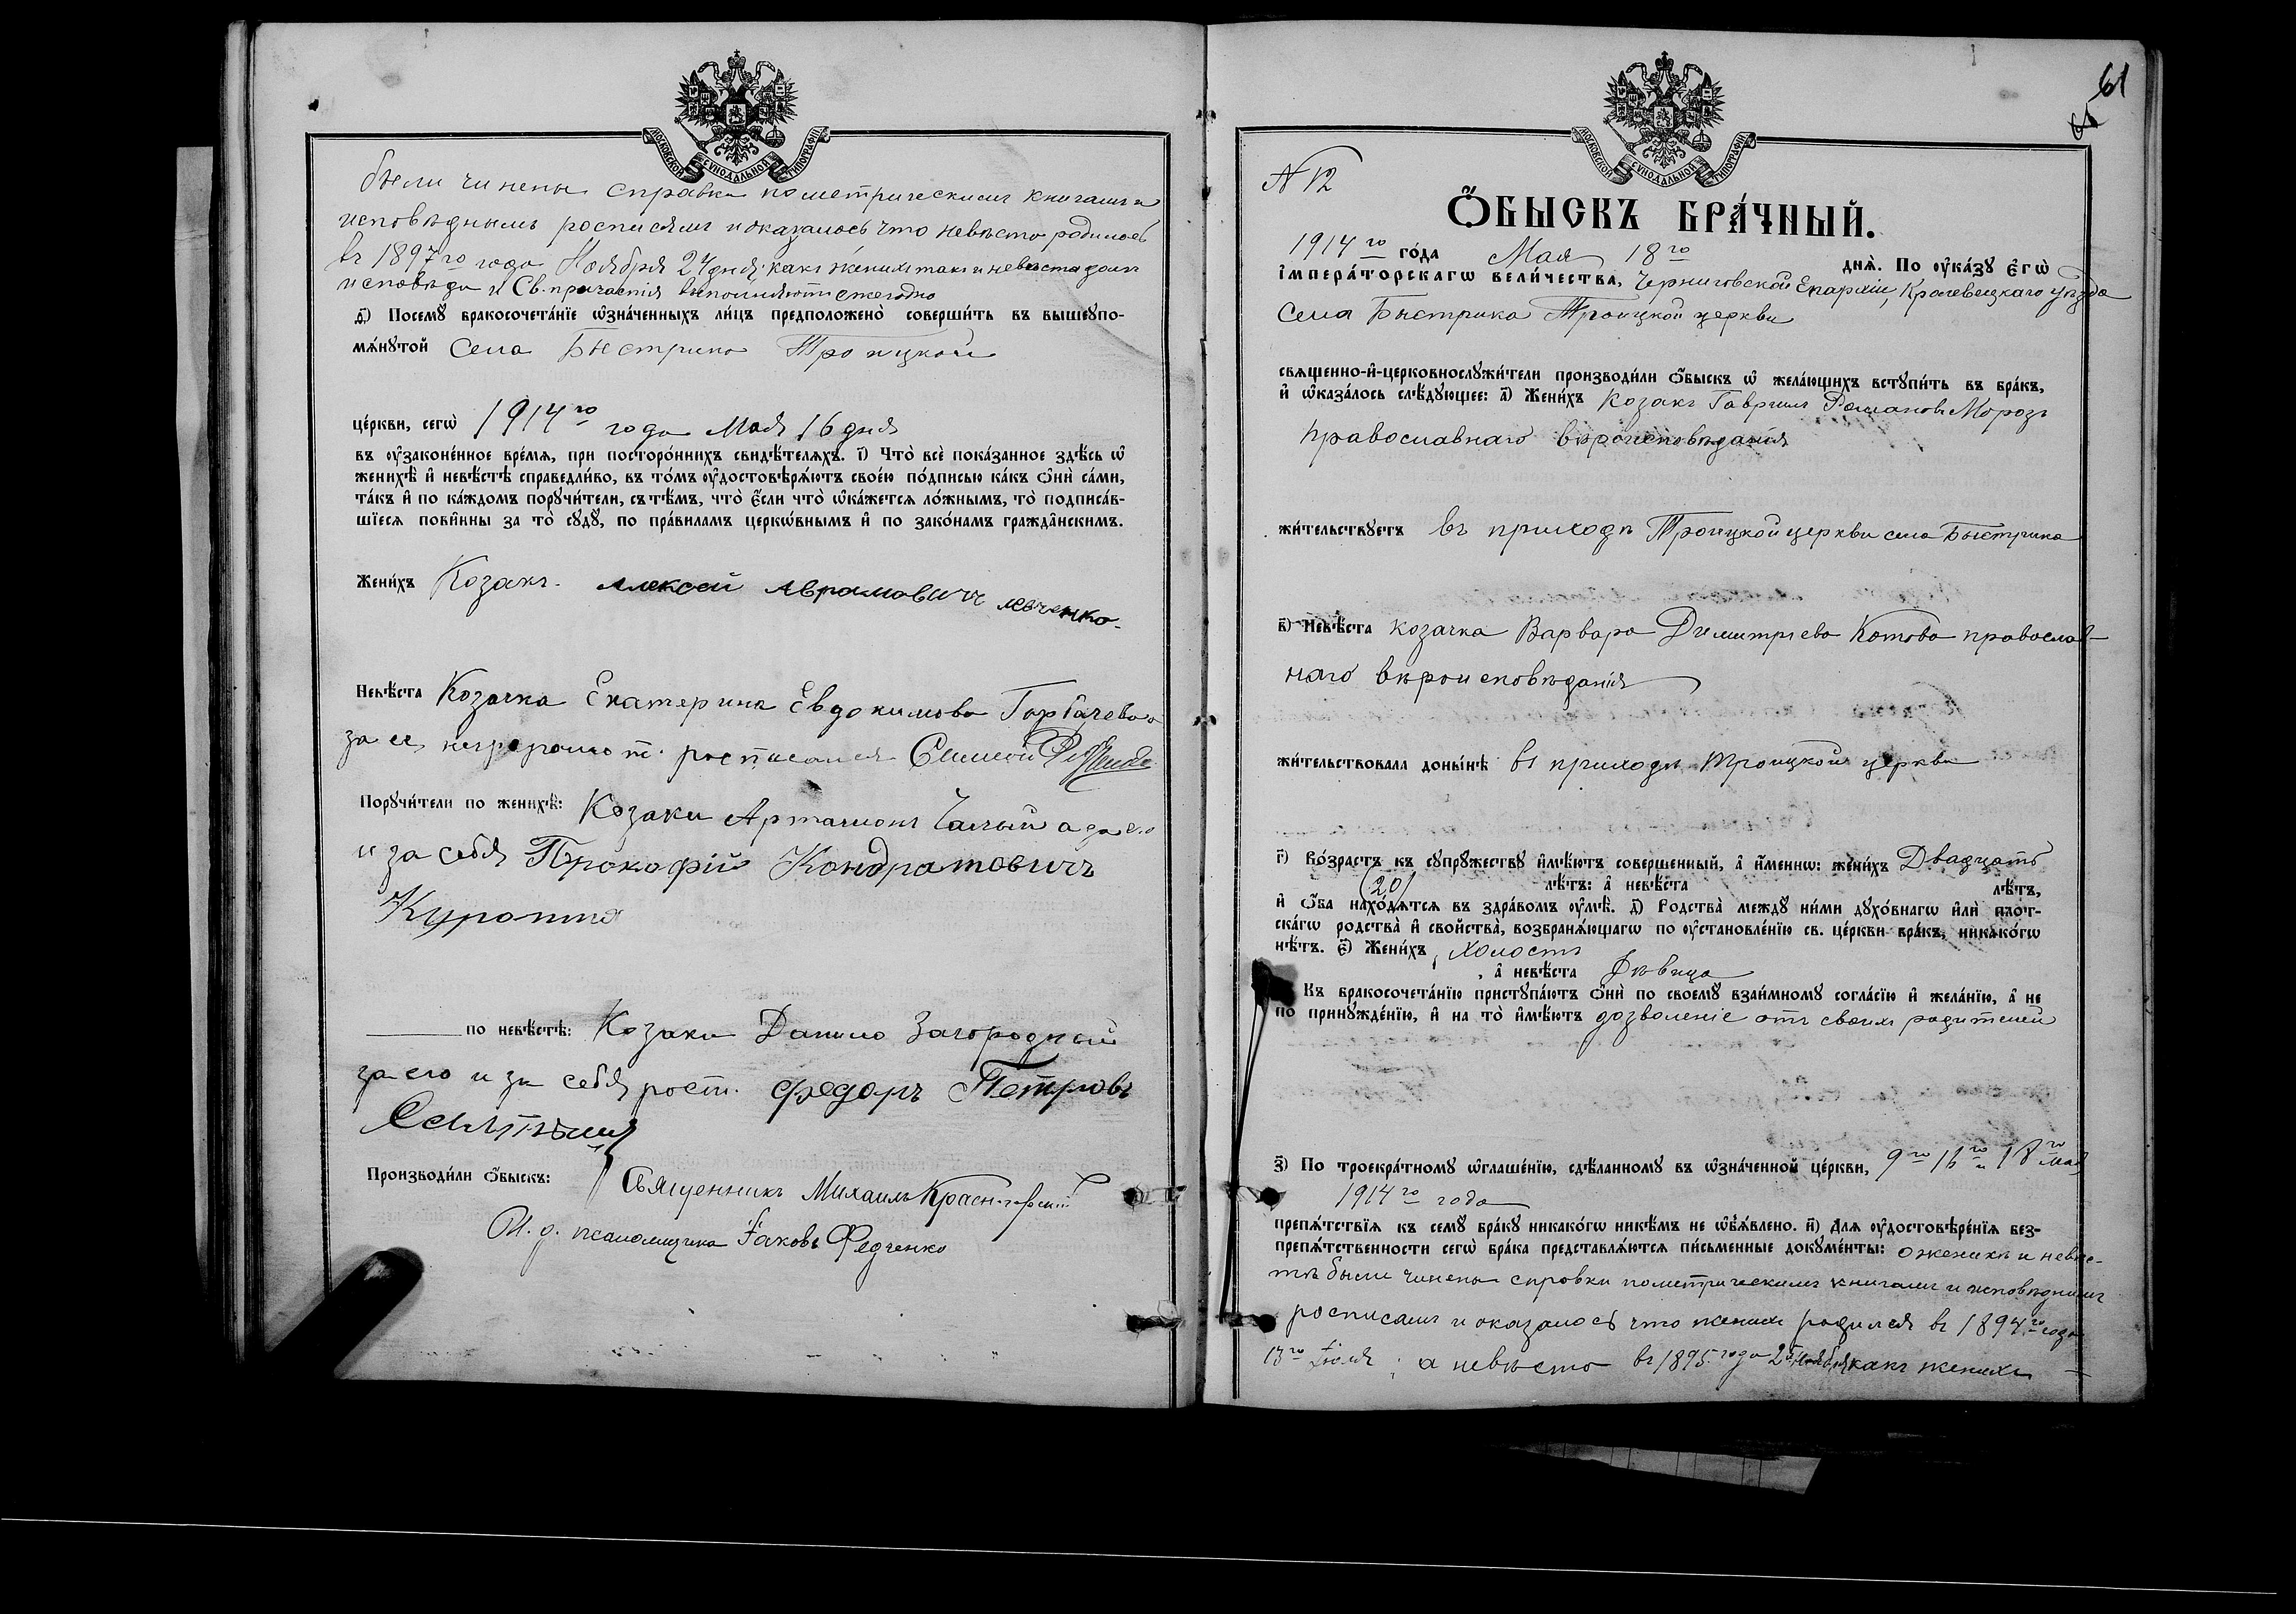 МОСКОВСКОЙ СУНОДАЛЬНОЙ ТИПОГРАФІИ
были чинены справки по метрическимъ книгамъ и
исповѣднымъ росписямъ и оказалось что невѣста родилась
въ 1897го года Ноября 24 дня; какъ женихъ такъ и невѣста долгъ
исповѣди и Св. причастія выполняютъ ежегодно
ѳ҃) Посемꙋ бракосочета́нїе ѡ҆зна́ченныхъ ли́цъ предположено̀ соверши́ть въ вышеꙋпо-
мѧ́нꙋтой села Быстрика Троицкой
це́ркви, сегѡ̀ 1914го года Мая 16 дня
въ ᲂу҆зако́ненное вре́мѧ, при посторо́ннихъ свидѣ́телѧхъ. і҃) Что̀ всѐ пока́занное здѣ́сь ѡ҆
женихѣ̀ и҆ невѣ́стѣ справедли́во, въ то́мъ ᲂу҆достовѣрѧ́ютъ свое́ю по́дписью ка́къ ѻ҆нѝ са́ми,
та́къ и҆ по ка́ждомъ порꙋчи́тели, съ тѣ́мъ, что̀ є҆́сли что̀ ѡ҆ка́жется ло́жнымъ, то̀ подписа́в-
шїесѧ пови́нны за то̀ сꙋдꙋ̀, по пра́виламъ церкѡ́внымъ и҆ по зако́намъ гражда́нскимъ.
Жени́хъ Козакъ Алексей Аврамовичъ Левченко.
Невѣ́ста Козачка Екатерина Евдокимова Горбачева а
за ее неграмотн. росписался Симеонъ
Порꙋчи́тели по женихѣ̀: Козаки Артамонъ Чалый а за его
и за себя Прокофій Кондратовичъ
по невѣ́стѣ: Козаки Данило Загородный
за его и за себя росп. Федоръ Петровъ
Производи́ли ѻ҆́быскъ: Священникъ Михаилъ
И. д. псаломщика Іаковъ Федченко
61
МОСКОВСКОЙ СУНОДАЛЬНОЙ ТИПОГРАФІИ
N 12
Ѻ҆́БЫСКЪ БРА́ЧНЫЙ.
1914го го́да Мая 18го днѧ̀. По ᲂу҆ка́зꙋ є҆гѡ̀
і҆мпера́торскагѡ вели́чества, Черниговской Епархіи, Кролевецкаго уѣзда
Села Быстрика Троицкой церкви
свѧщенно-и҆-церковнослꙋжи́тели производи́ли ѻ҆́быскъ ѡ҆ жела́ющихъ встꙋпи́ть въ бра́къ,
и҆ ѡ҆каза́лось слѣ́дꙋющее: а҃) Жени́хъ Козакъ Гавріилъ Романовъ Морозъ
православнаго вѣроисповѣданія
жи́тельствꙋетъ въ приходѣ Троицкой церкви села Быстрика
в҃) Невѣ́ста козачка Варвара Димитріева Котова православ-
наго вѣроисповѣданія
жи́тельствовала доны́нѣ въ приходѣ Троицкой церкви
г҃) Во́зрастъ къ сꙋпрꙋ́жествꙋ и҆мѣ́ютъ соверше́нный, а҆ и҆́меннѡ: жени́хъ Двадцать
(20) лѣ́тъ: а҆ невѣ́ста лѣ́тъ,
и҆ ѻ҆́ба нахо́дѧтся въ здра́вомъ ᲂу҆мѣ̀. д҃) Родства̀ междꙋ ни́ми дꙋхо́внагѡ и҆лѝ плот-
ска́гѡ родства̀ и҆ сво́йства̀, возбранѧ́ющагѡ по ᲂу҆становле́нїю св. це́ркви бра́къ, никако́гѡ
нѣ́тъ. є҃) Жени́хъ холостъ
, а҆ невѣ́ста дѣвица
Къ бракосочета́нїю пристꙋпа́ютъ ѻ҆нѝ по своемꙋ̀ взаи́мномꙋ согла́сїю и҆ жела́нїю, а҆ не
по принꙋжде́нїю, и҆ на то̀ и҆мѣ́ютъ дозволеніе отъ своихъ родителей
з҃) По троекра́тномꙋ ѡ҆глаше́нїю, сдѣ́ланномꙋ въ ѡ҆зна́ченной це́ркви, 9го 16го и 18го мая
1914го года
препѧ́тствїѧ къ семꙋ̀ бра́кꙋ никако́гѡ никѣ́мъ не ѡ҆б̾ѧ́влено. и҃) Длѧ ᲂу҆достовѣре́нїѧ без-
препѧ́тственности сегѡ̀ бра́ка представлѧ́ютсѧ пи́сьменные докꙋме́нты: о женихѣ и невѣс-
тѣ были чинены справки по метрическимъ книгамъ и исповѣднымъ
росписямъ и оказалось что женихъ родился въ 1894го года
13го Іюля; а невѣста въ 1895го года 25 Ноября какъ женихъ